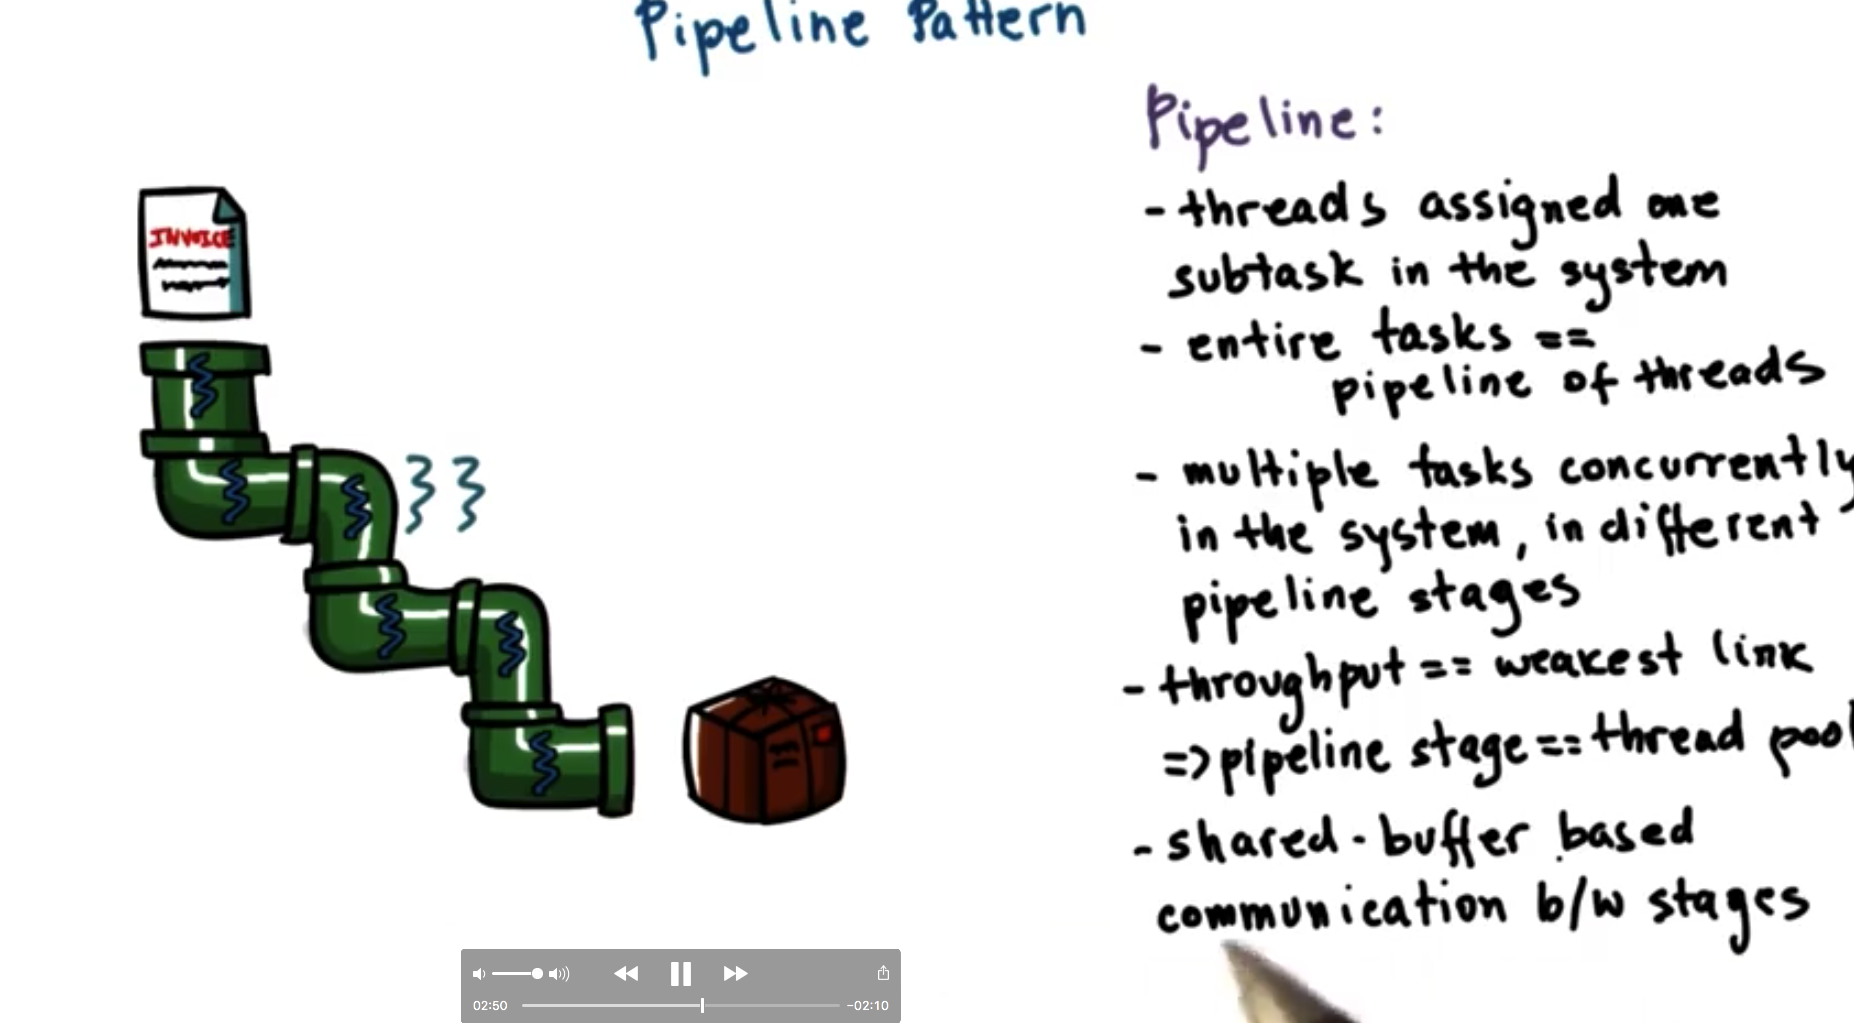 Pipeline Pattern
Pipeline:
- threads assigned one
subtask in the system
- entire tasks ==
pipeline of threads
- multiple tasks concurrently
in the system, in different
pipeline stages
- throughput == weakest link
=> pipeline stage == thread pool
- shared-buffer based
communication b/w stages
INVOICE
02:50
-02:10